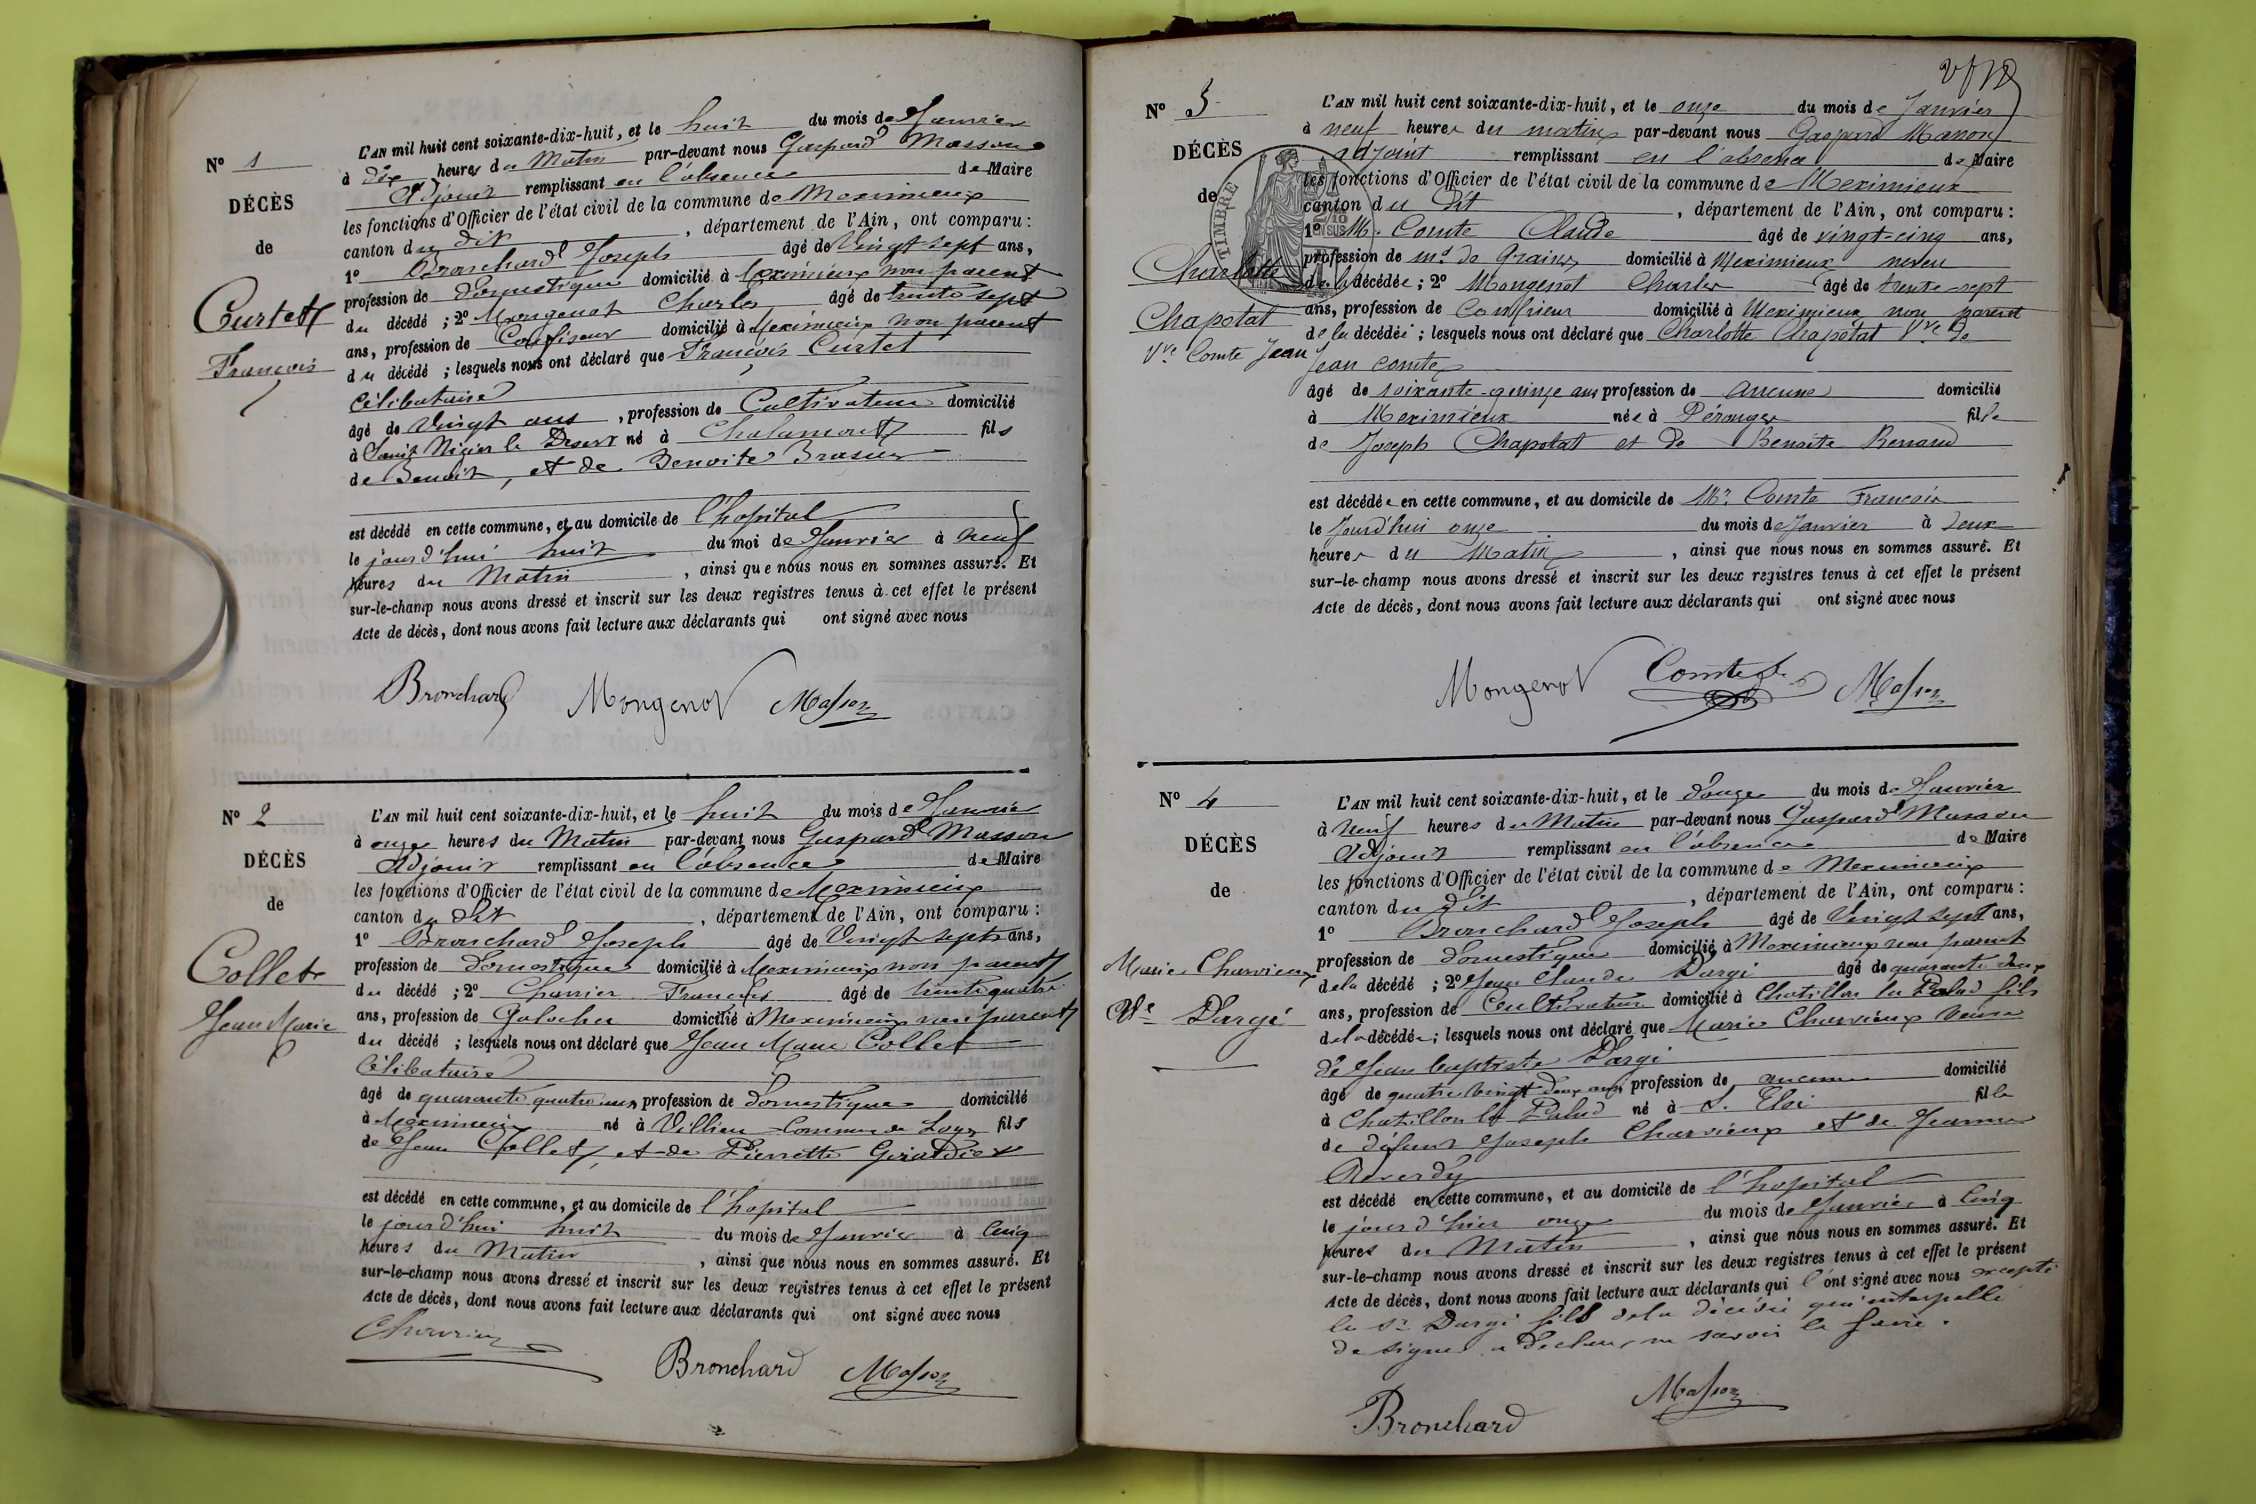 N° 1
DÉCÈS
de
Curtet
François
L'AN mil huit cent soixante-dix-huit, et le huit du mois de Janvier
à dix heures du Matin par-devant nous Gaspard Masson
Adjoint remplissant en l'absence de Maire
les fonctions d'Officier de l'état civil de la commune de Meximieux
canton du dit , département de l'Ain, ont comparu :
1° Bronchard Joseph âgé de Vingt sept ans,
profession de domestique domicilié à Meximieux non parent
du décédé ; 2° Mongenot Charles âgé de trente sept
ans, profession de Confiseur domicilié à Meximieux non parent
du décédé ; lesquels nous ont déclaré que François Curtet
Célibataire
âgé de Vingt ans , profession de Cultivateur domicilié
à Saint Nizier le Désert né à Chalamont fils
de Benoit, et de Benoite Brasier
est décédé en cette commune, et au domicile de l'hopital
le jourd'hui huit du moi de Janvier à neuf
heures du Matin , ainsi que nous nous en sommes assuré. Et
sur-le-champ nous avons dressé et inscrit sur les deux registres tenus à cet effet le présent
Acte de décès, dont nous avons fait lecture aux déclarants qui ont signé avec nous
Bronchard Mongenot Masson
N° 2
DÉCÈS
de
Collet
Jean Marie
L'AN mil huit cent soixante-dix-huit, et le huit du mois de Janvier
à onze heures du Matin par-devant nous Gaspard Masson
Adjoint remplissant en l'absence de Maire
les fonctions d'Officier de l'état civil de la commune de Meximieux
canton du dit , département de l'Ain, ont comparu :
1° Bronchard Joseph âgé de Vingt sept ans,
profession de domestique domicilié à Meximieux non parent
du décédé ; 2° Charrier François âgé de trente quatre
ans, profession de Galocher domicilié à Meximieux non parent
du décédé ; lesquels nous ont déclaré que Jean Marie Collet
Célibataire
âgé de quarante quatre ans profession de domestique domicilié
à Meximieux né à Villieu Commune de Loyes fils
de Jean Collet, et de Pierrette Girardier
est décédé en cette commune, et au domicile de l'hopital
le jourd'hui huit du mois de Janvier à Cinq
heures du Matin , ainsi que nous nous en sommes assuré. Et
sur-le-champ nous avons dressé et inscrit sur les deux registres tenus à cet effet le présent
Acte de décès, dont nous avons fait lecture aux déclarants qui ont signé avec nous
Charrier
Bronchard Masson
N° 3
DÉCÈS
de
Charlotte
Chapotat
Vve Comte Jean
TIMBRE
L'AN mil huit cent soixante-dix-huit, et le onze du mois de Janvier
à neuf heures du matin par-devant nous Gaspard Masson
adjoint remplissant en l'absence de Maire
les fonctions d'Officier de l'état civil de la commune de Meximieux
canton du dit , département de l'Ain, ont comparu :
1° M. Comte Claude âgé de vingt-cinq ans,
profession de md de Grains domicilié à Meximieux neveu
de la décédée ; 2° Mongenot Charles âgé de trente sept
ans, profession de Confiseur domicilié à Meximieux non parent
de la décédée ; lesquels nous ont déclaré que Charlotte Chapotat Vve de
Jean Comte
âgé de soixante-quinze ans profession de aucune domicilié
à Meximieux née à Pérouges fille
de Joseph Chapotat et de Benoite Renaud
est décédée en cette commune, et au domicile de Mr. Comte François
le Jourd'hui onze du mois de Janvier à deux
heures du Matin , ainsi que nous nous en sommes assuré. Et
sur-le-champ nous avons dressé et inscrit sur les deux registres tenus à cet effet le présent
Acte de décès, dont nous avons fait lecture aux déclarants qui ont signé avec nous
Mongenot Comte Masson
N° 4
DÉCÈS
de
Marie Charvieux
Ve Dargi
L'AN mil huit cent soixante-dix-huit, et le douze du mois de Janvier
à Neuf heures du Matin par-devant nous Gaspard Masson
Adjoint remplissant en l'absence de Maire
les fonctions d'Officier de l'état civil de la commune de Meximieux
canton du dit , département de l'Ain, ont comparu :
1° Bronchard Joseph âgé de Vingt sept ans,
profession de domestique domicilié à Meximieux non parent
de la décédé ; 2° Jean Claude Dargi âgé de quarante deux
ans, profession de Cultivateur domicilié à Chatillon la Palud fils
de la décédée ; lesquels nous ont déclaré que Marie Charvieux Veuve
de Jean baptiste Dargi
âgé de quatre vingt deux ans profession de aucune domicilié
à Chatillon la Palud né à S. Eloi fille
de défunt Joseph Charvieux et de Jeanne
Reverdy
est décédé en cette commune, et au domicile de l'hopital
le jour d'hier onze du mois de Janvier à Cinq
heures du Matin , ainsi que nous nous en sommes assuré. Et
sur-le-champ nous avons dressé et inscrit sur les deux registres tenus à cet effet le présent
Acte de décès, dont nous avons fait lecture aux déclarants qui l'ont signé avec nous excepté
le Sr Dargi fils de la décédée qui interpellé
de signer a déclaré ne savoir le faire.
Bronchard Masson